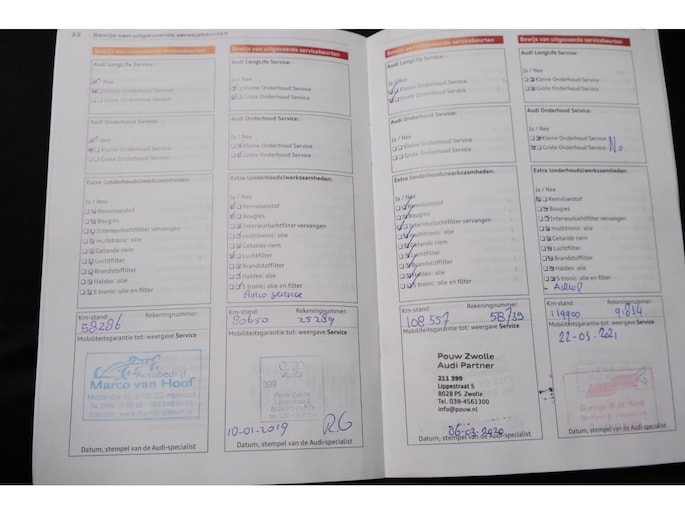 22 Bewijs van uitgevoerde servicebeurten
Bewijs van uitgevoerde servicebeurten
Audi LongLife Service:
Ja / Nee
Kleine Onderhoud Service
Grote Onderhoud Service
Audi Onderhoud Service:
Ja / Nee
Kleine Onderhoud Service
Grote Onderhoud Service
Extra (onderhouds)werkzaamheden:
Ja / Nee
Remvloeistof
Bougies
Interieurluchtfilter vervangen
multitronic: olie
Getande riem
Luchtfilter
Brandstoffilter
Haldex: olie
S tronic: olie en filter
Km-stand: Rekeningnummer:
58286
Mobiliteitsgarantie tot: weergave Service
Autobedrijf
Marco van Hoof
Datum, stempel van de Audi-specialist
Bewijs van uitgevoerde servicebeurten
Audi LongLife Service:
Ja / Nee
Kleine Onderhoud Service
Grote Onderhoud Service
Audi Onderhoud Service:
Ja / Nee
Kleine Onderhoud Service
Grote Onderhoud Service
Extra (onderhouds)werkzaamheden:
Ja / Nee
Remvloeistof
Bougies
Interieurluchtfilter vervangen
multitronic: olie
Getande riem
Luchtfilter
Brandstoffilter
Haldex: olie
S tronic: olie en filter
Airco service
Km-stand: Rekeningnummer:
80650 25284
Mobiliteitsgarantie tot: weergave Service
Pouw Zwolle
10-01-2019
Datum, stempel van de Audi-specialist
Bewijs van uitgevoerde servicebeurten
Audi LongLife Service:
Ja / Nee
Kleine Onderhoud Service
Grote Onderhoud Service
Audi Onderhoud Service:
Ja / Nee
Kleine Onderhoud Service
Grote Onderhoud Service
Extra (onderhouds)werkzaamheden:
Ja / Nee
Remvloeistof
Bougies
Interieurluchtfilter vervangen
multitronic: olie
Getande riem
Luchtfilter
Brandstoffilter
Haldex: olie
S tronic: olie en filter
Km-stand: Rekeningnummer:
108557 58739
Mobiliteitsgarantie tot: weergave Service
Pouw Zwolle
Audi Partner
211 399
Lippestraat 5
8028 PS Zwolle
Tel. 038-4561300
info@pouw.nl
06-02-2020
Datum, stempel van de Audi-specialist
Bewijs van uitgevoerde servicebeurten
Audi LongLife Service:
Ja / Nee
Kleine Onderhoud Service
Grote Onderhoud Service
Audi Onderhoud Service:
Ja / Nee
Kleine Onderhoud Service
Grote Onderhoud Service
Extra (onderhouds)werkzaamheden:
Ja / Nee
Remvloeistof
Bougies
Interieurluchtfilter vervangen
multitronic: olie
Getande riem
Luchtfilter
Brandstoffilter
Haldex: olie
S tronic: olie en filter
Km-stand: Rekeningnummer:
119900
Mobiliteitsgarantie tot: weergave Service
22-03-2021
Datum, stempel van de Audi-specialist